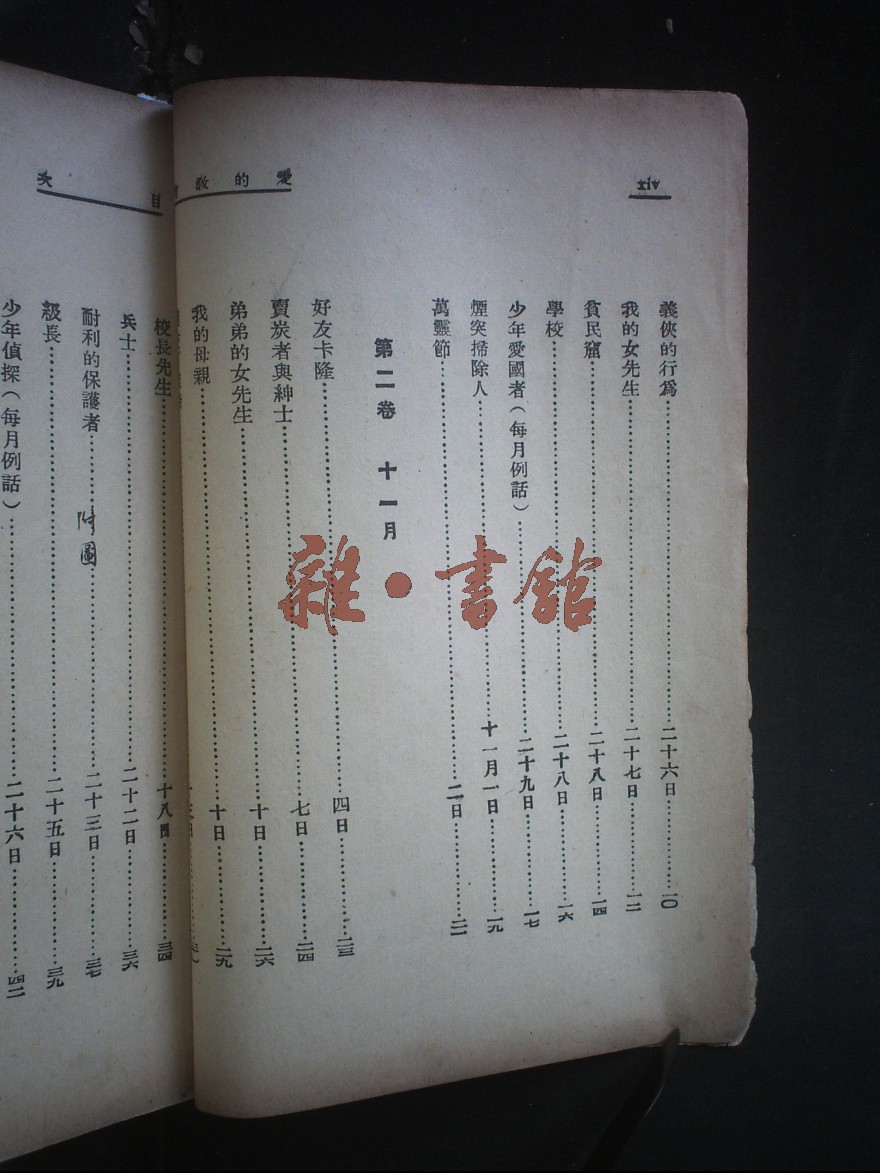 xiv
愛的教
義俠的行為……二十六日……一〇
我的女先生……二十七日……一二
貧民窟……二十八日……一四
學校……二十八日……一六
少年愛國者(每月例話)……二十九日……一七
煙突掃除人……十一月一日……一九
萬靈節……二日……二一
第二卷 十一月
好友卡隆……四日……二三
賣炭者與紳士……七日……二四
弟弟的女先生……十日……二六
我的母親……十日……二九
目次
校長先生……十八日……三四
兵士……二十二日……三六
耐利的保護者……二十三日……三七
附圖
級長……二十五日……三九
少年偵探(每月例話)……二十六日……四二
雜·書館